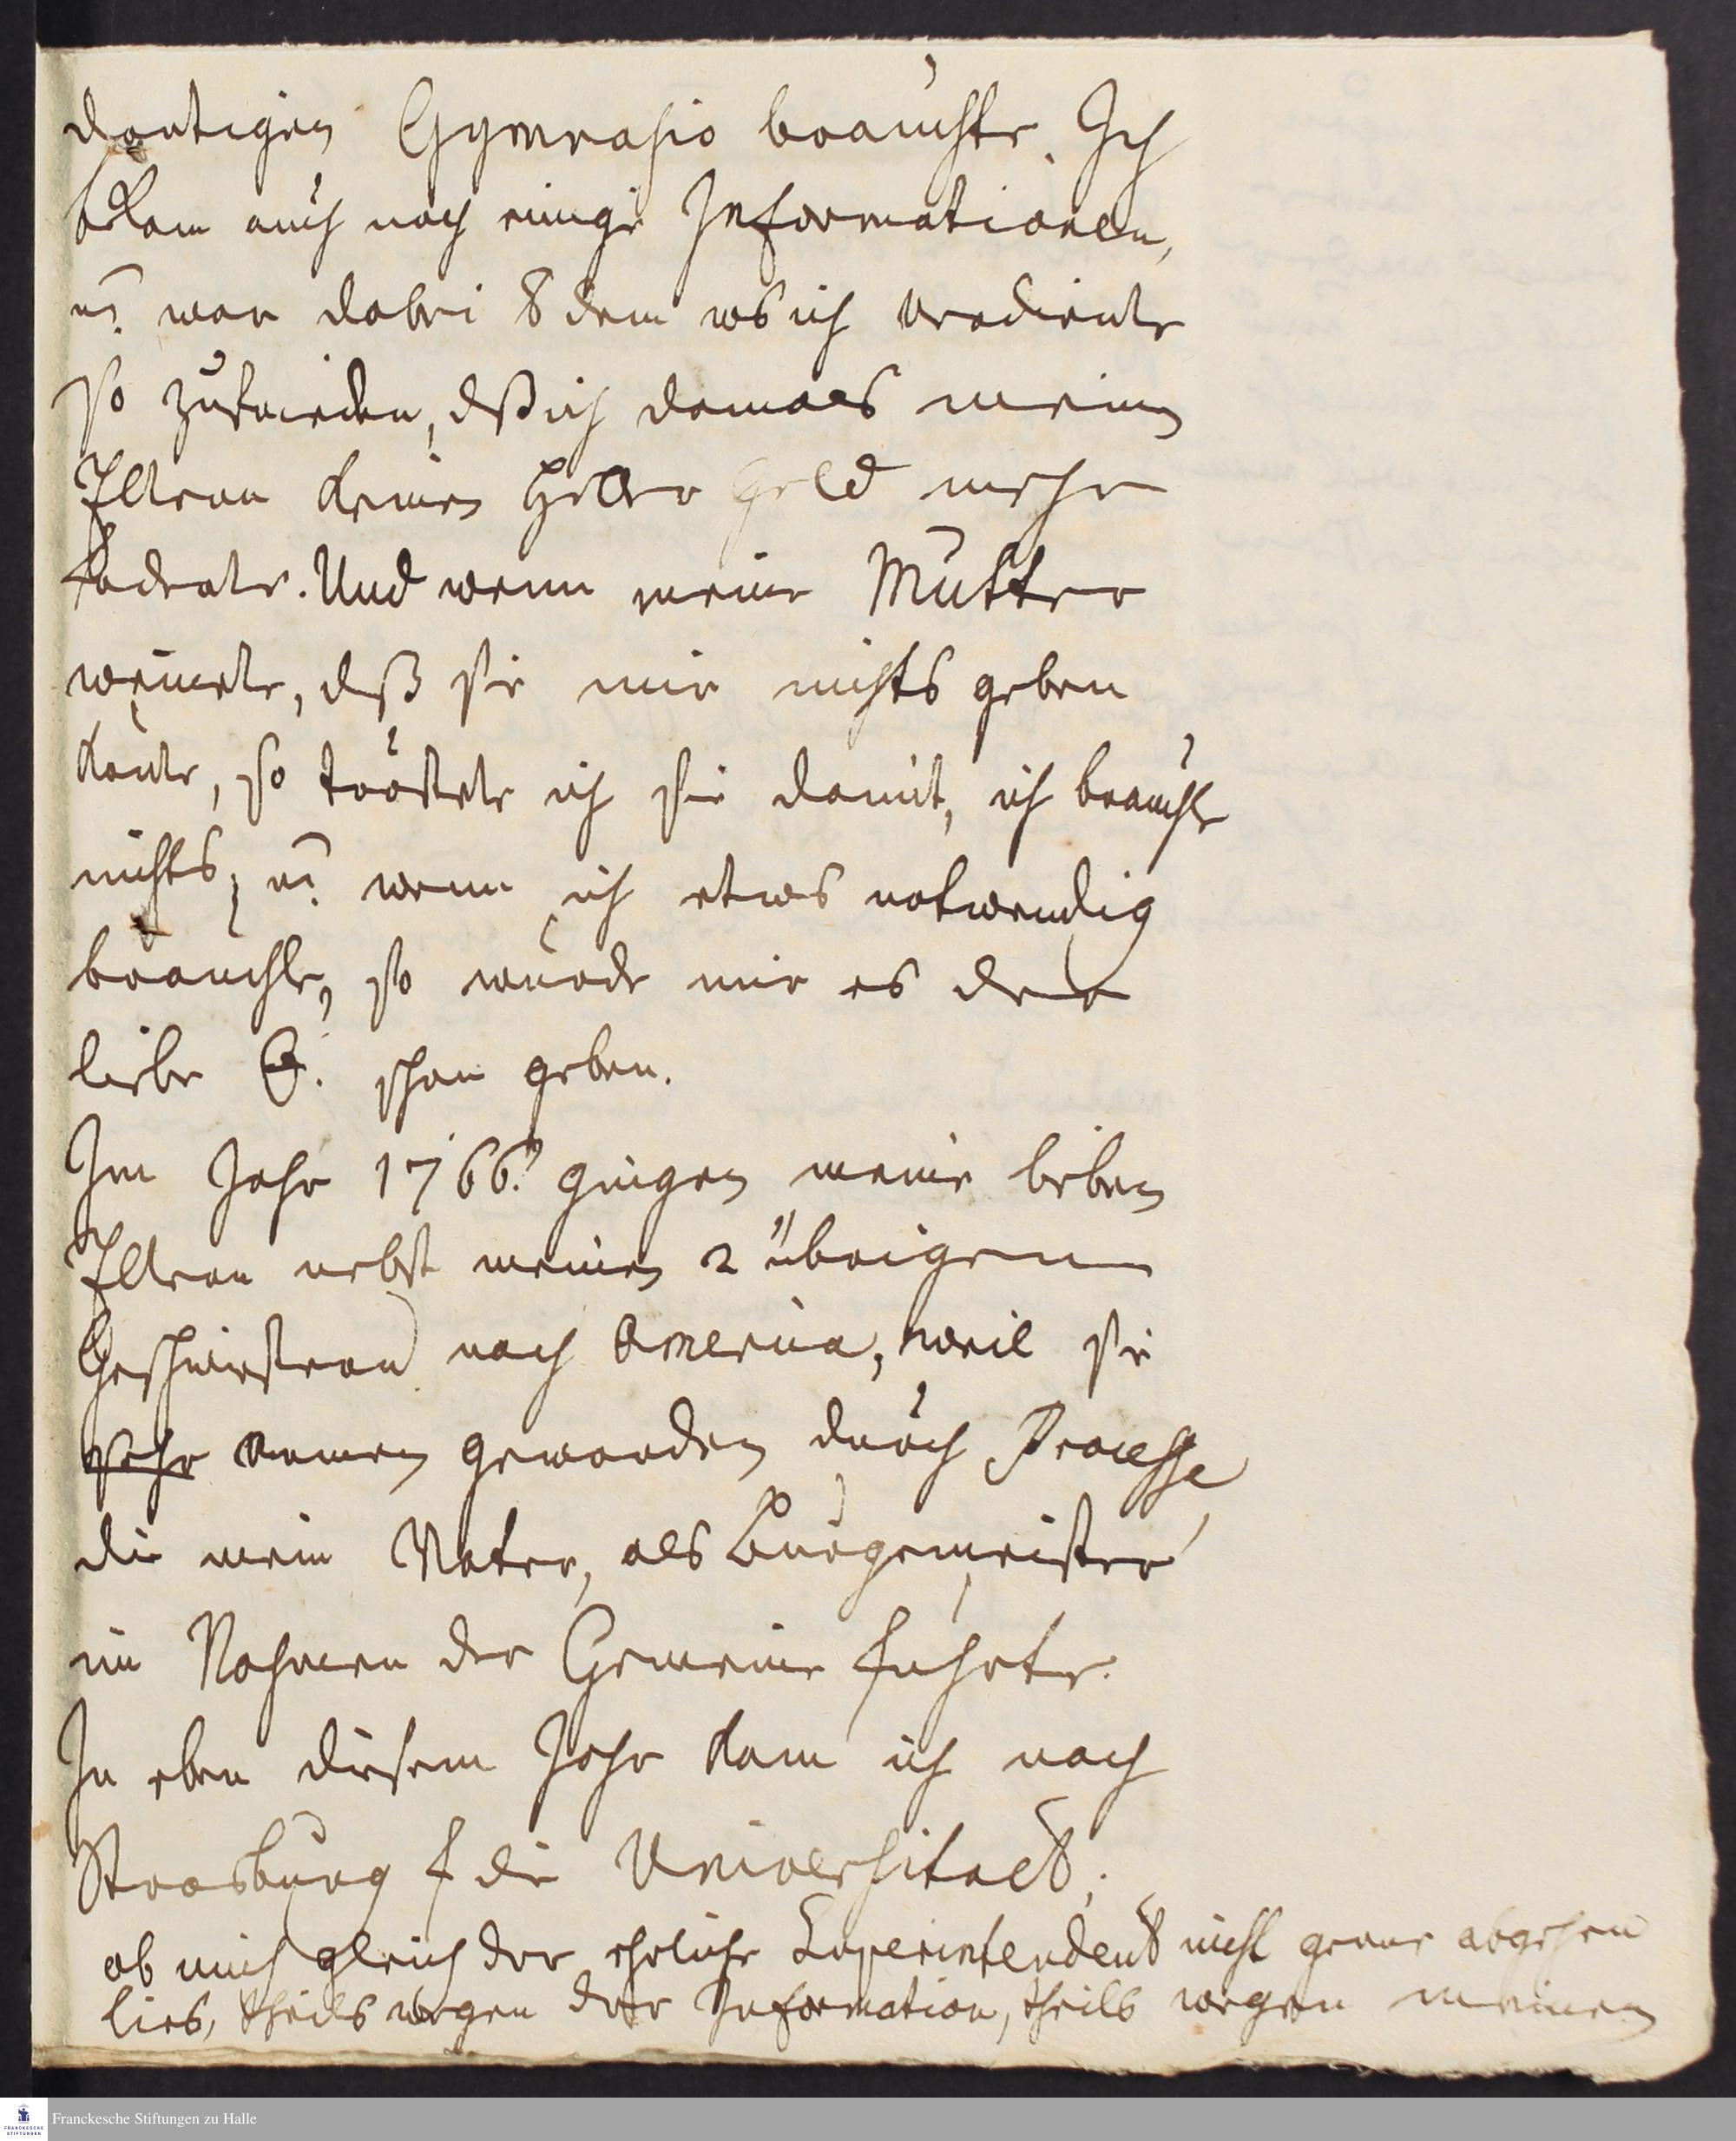 dortigen Gymnasio brauchte. Ich
bekam auch noch einige Informationen,
u. war dabei & dem ws ich verdiente
so zufrieden, dß ich damals meinen
Eltern keinen Heller Geld mehr
foderte. Und wenn meine Mutter
weinete, dß sie mir nichts geben
könte, so tröstete ich sie damit, ich brauchte
nichts; u. wenn ich etwas notwendig
brauchte, so würde mir es der
liebe G. schon geben.
Im Jahr 1766. gingen meine lieben
Eltern nebst meinen 2 übrigen
Geschwistern nach America, weil sie
sehr armen geworden durch Processe
die mein Vater, als Burgemeister
im Nahmen der Gemeine fuhrte.
In eben diesem Jahr kam ich nach
Strasburg f die Universitaet,
ob mich gleich der ehrliche Superintendent nicht gerne abgehen
lies, theils wegen der Information, theils wegen meinen
Franckesche Stiftungen zu Halle
FRANCKESCHE
STIFTUNGEN